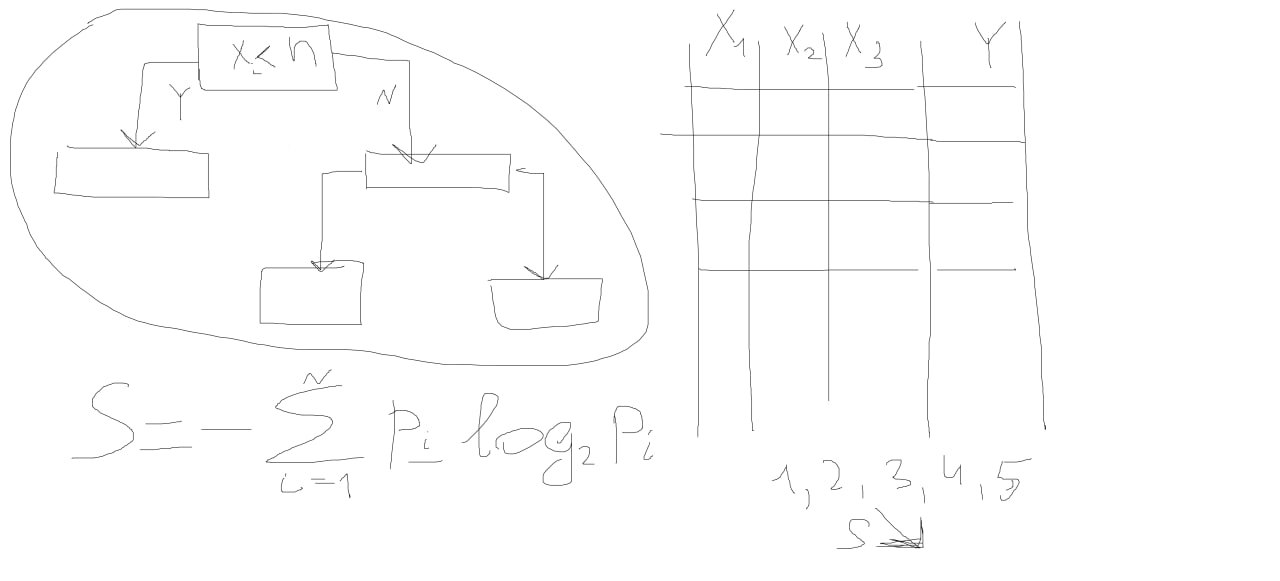 x_i < n
Y
N
S = - \sum_{i=1}^{N} p_i log_2 p_i
X_1 X_2 X_3 Y
1, 2, 3, 4, 5
S